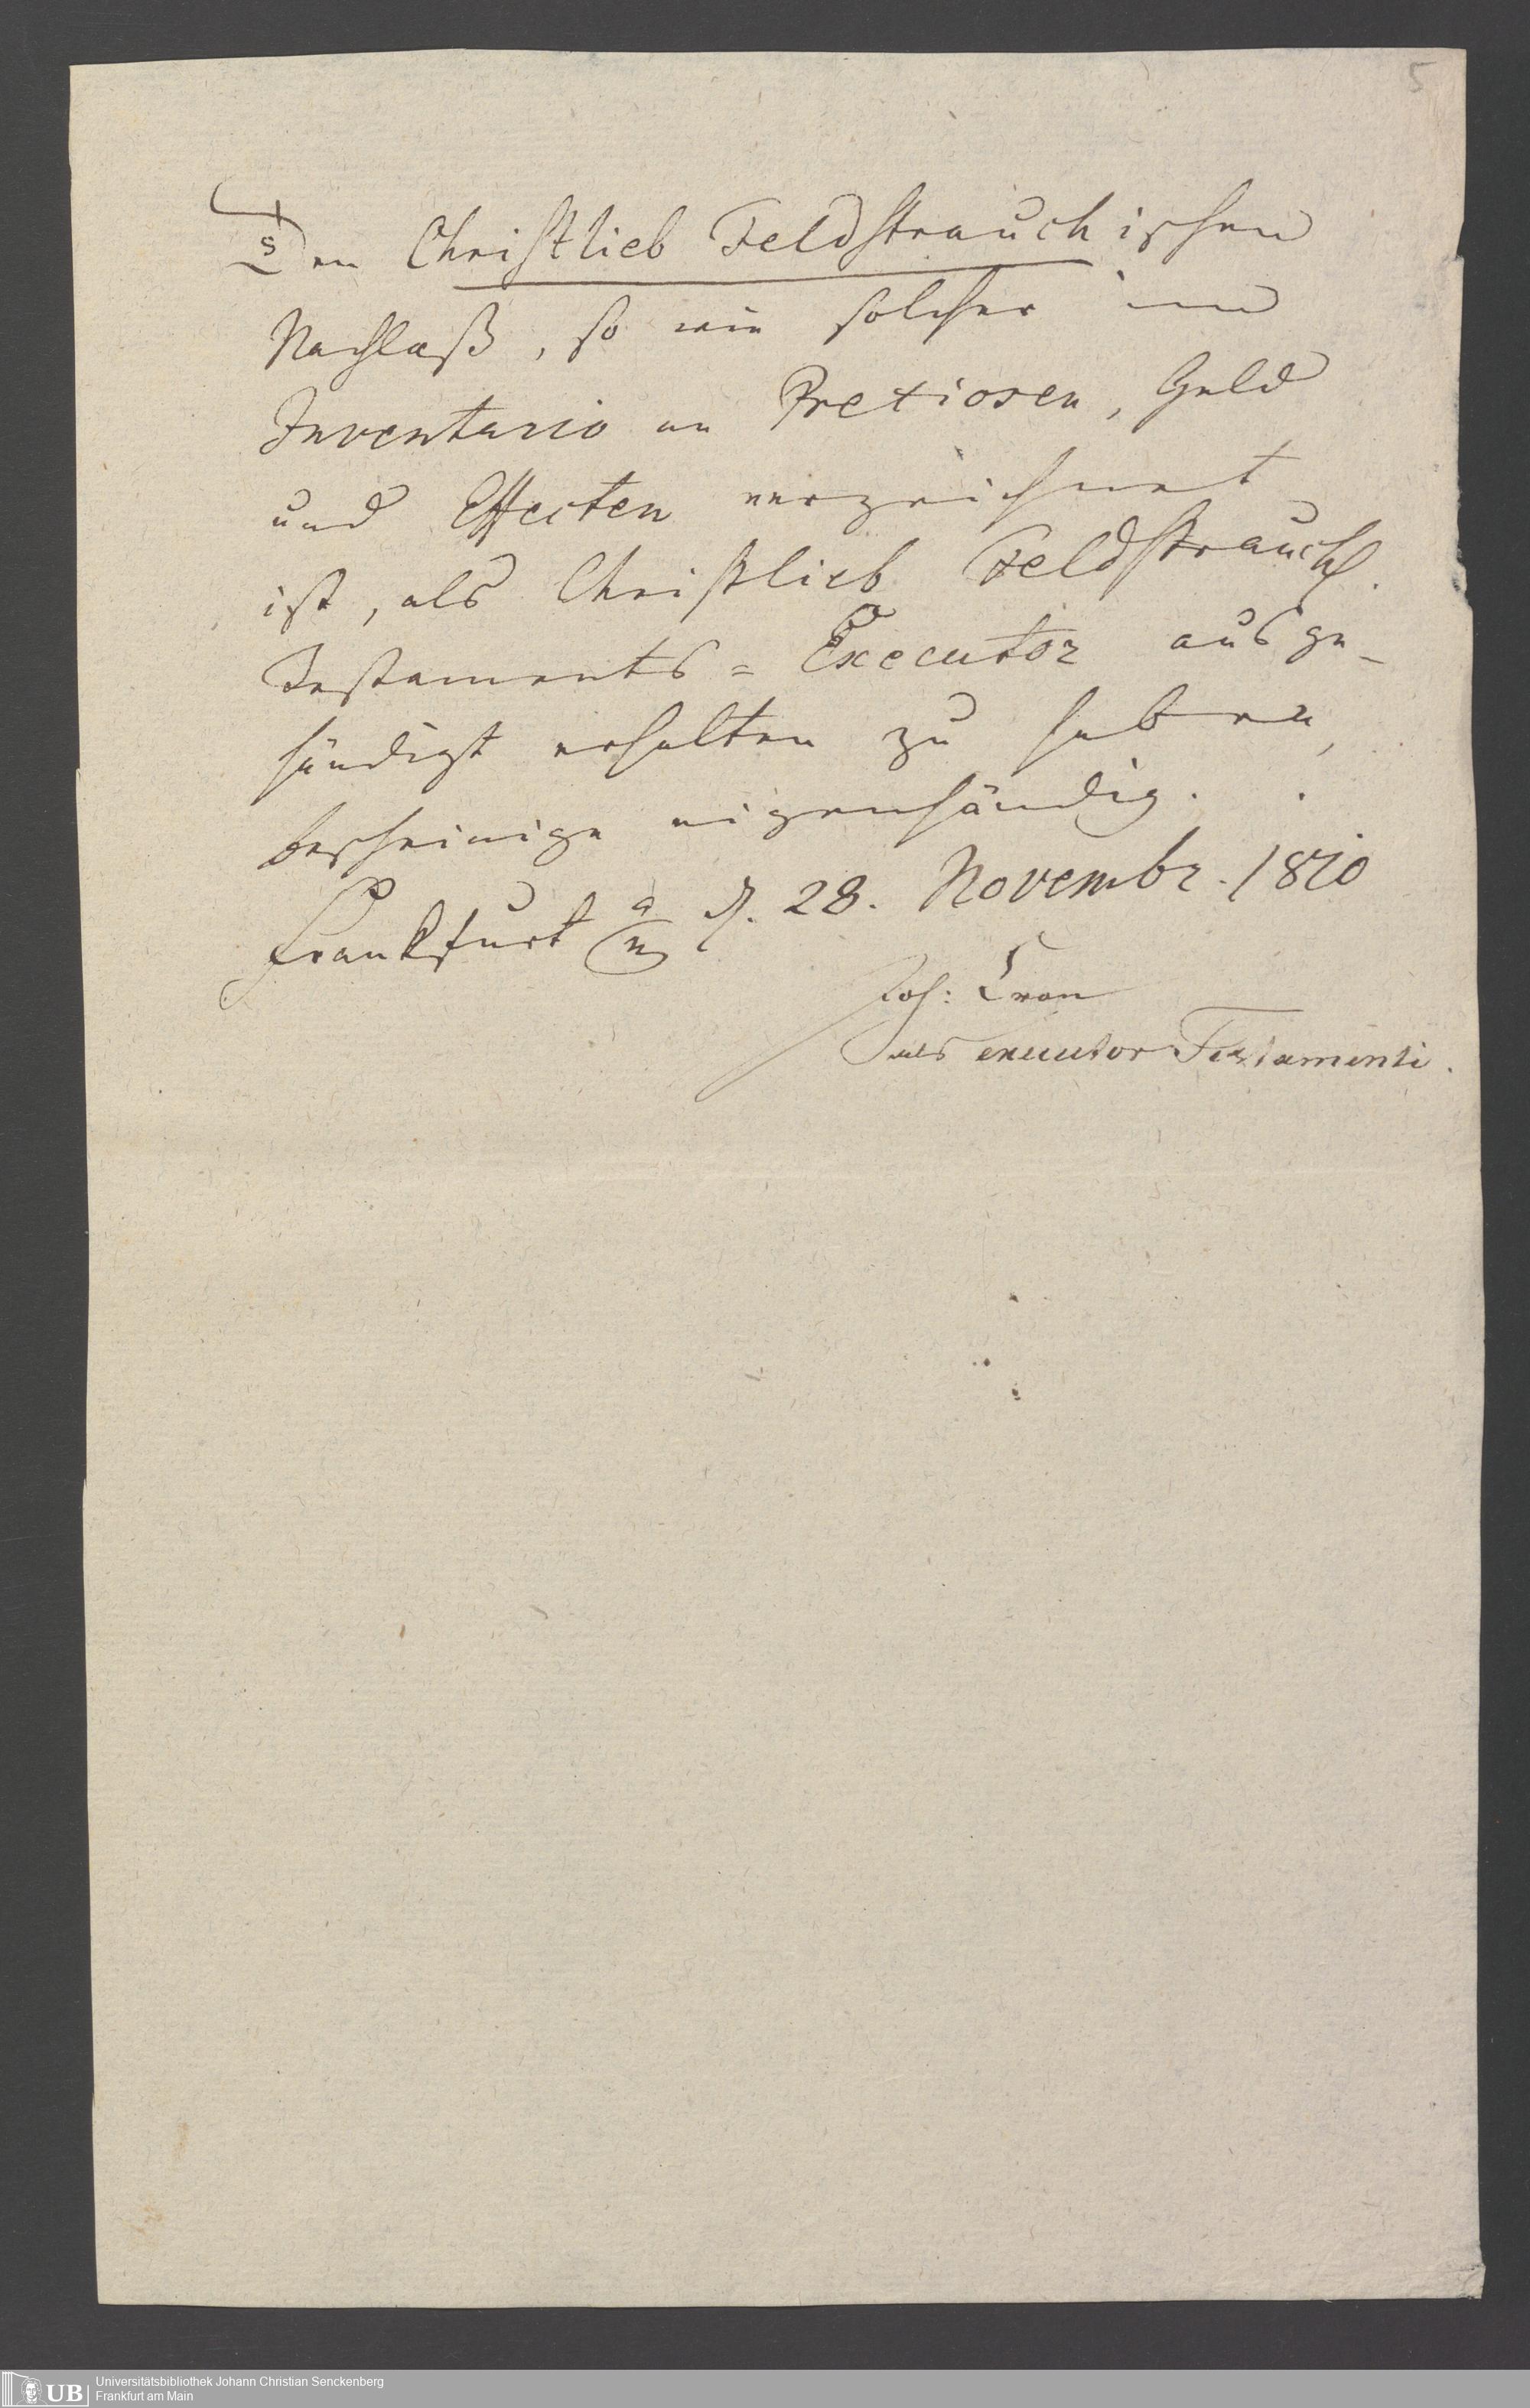 5
Den Christlieb Feldstrauchischen
Nachlaß, so wie solcher im
Inventario an Pretiosen, Geld
und Effecten verzeichnet
ist, als Christlieb Feldstrauch.
Testaments=Executor ausge-
händigt erhalten zu haben,
bescheinige eigenhändig.
Frankfurt a m d. 28. Novembr. 1810
Joh:
als executor Testamenti.
UB Universitätsbibliothek Johann Christian Senckenberg
Frankfurt am Main